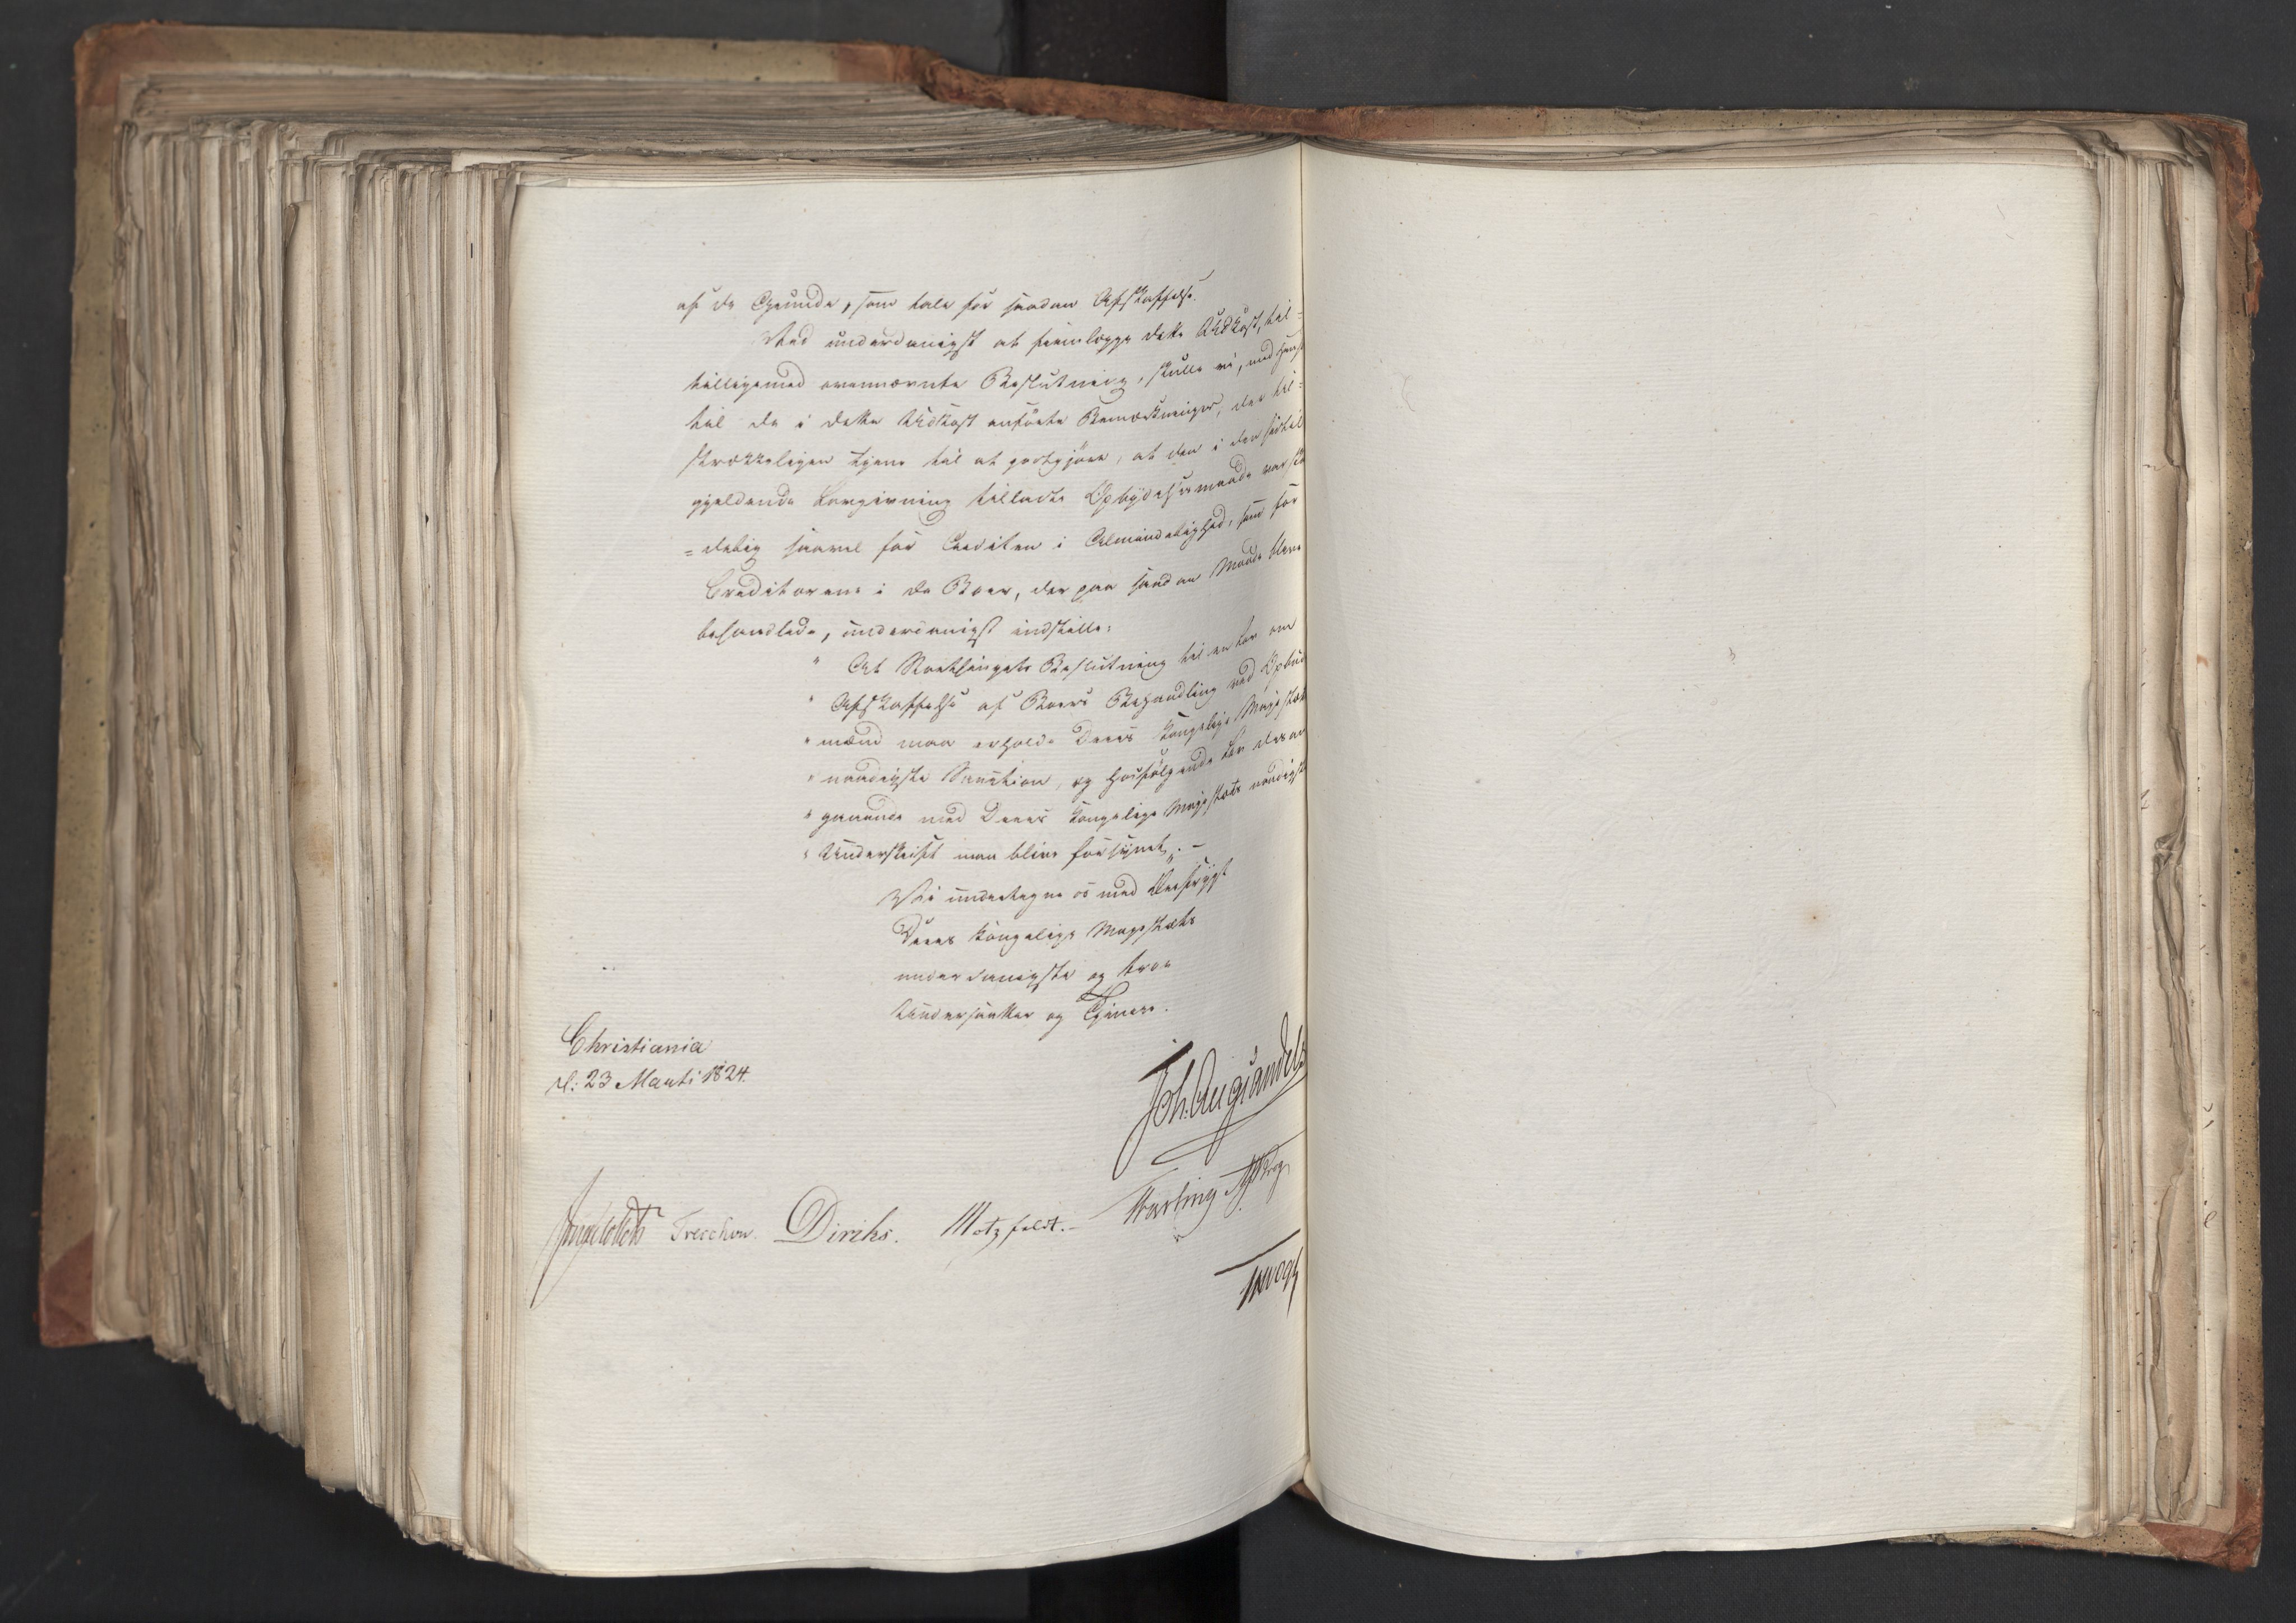 af de Grunde, som tale for saadan Afskaffelse.
Ved underdanigst at fremlægge dette Udkast, til=
tilligemed ovennævnte Beslutning, skulle vi, med Hens
til de i dette Udkast anførte Bemærkninger, der til=
strækkeligen tjene til at godtgjøre, at den i den hidtil
gjeldende Lovgivning tilladte Opbydelsesmaade var ska
=delig saavel for Crediten i Almindelighed, som for
Creditorerne i de Boer, der paa saadan Maade bleve
behandlede, underdanigst indstille:
" At Storthingets Beslutning til en Lov om
" Afskaffelse af Boers Behandling ved Opbuds
" mænd maa erholde Deres Kongelige Majestæts
" naadigste Sanction, og hosfølgende Lov desan
" gaaende med Deres Kongelige Majestæts naadigste
" Underskrift maa blive forsynet". -
Vi undertegne os med
Deres Kongelige Majestæts
underdanigste og troe
Undersaatter og Tjenere.
Christiania
d: 23 Marti 1824.
Joh. Aug. Sandels
Ingelstedt Treschow. Diriks. Motzfeldt. -